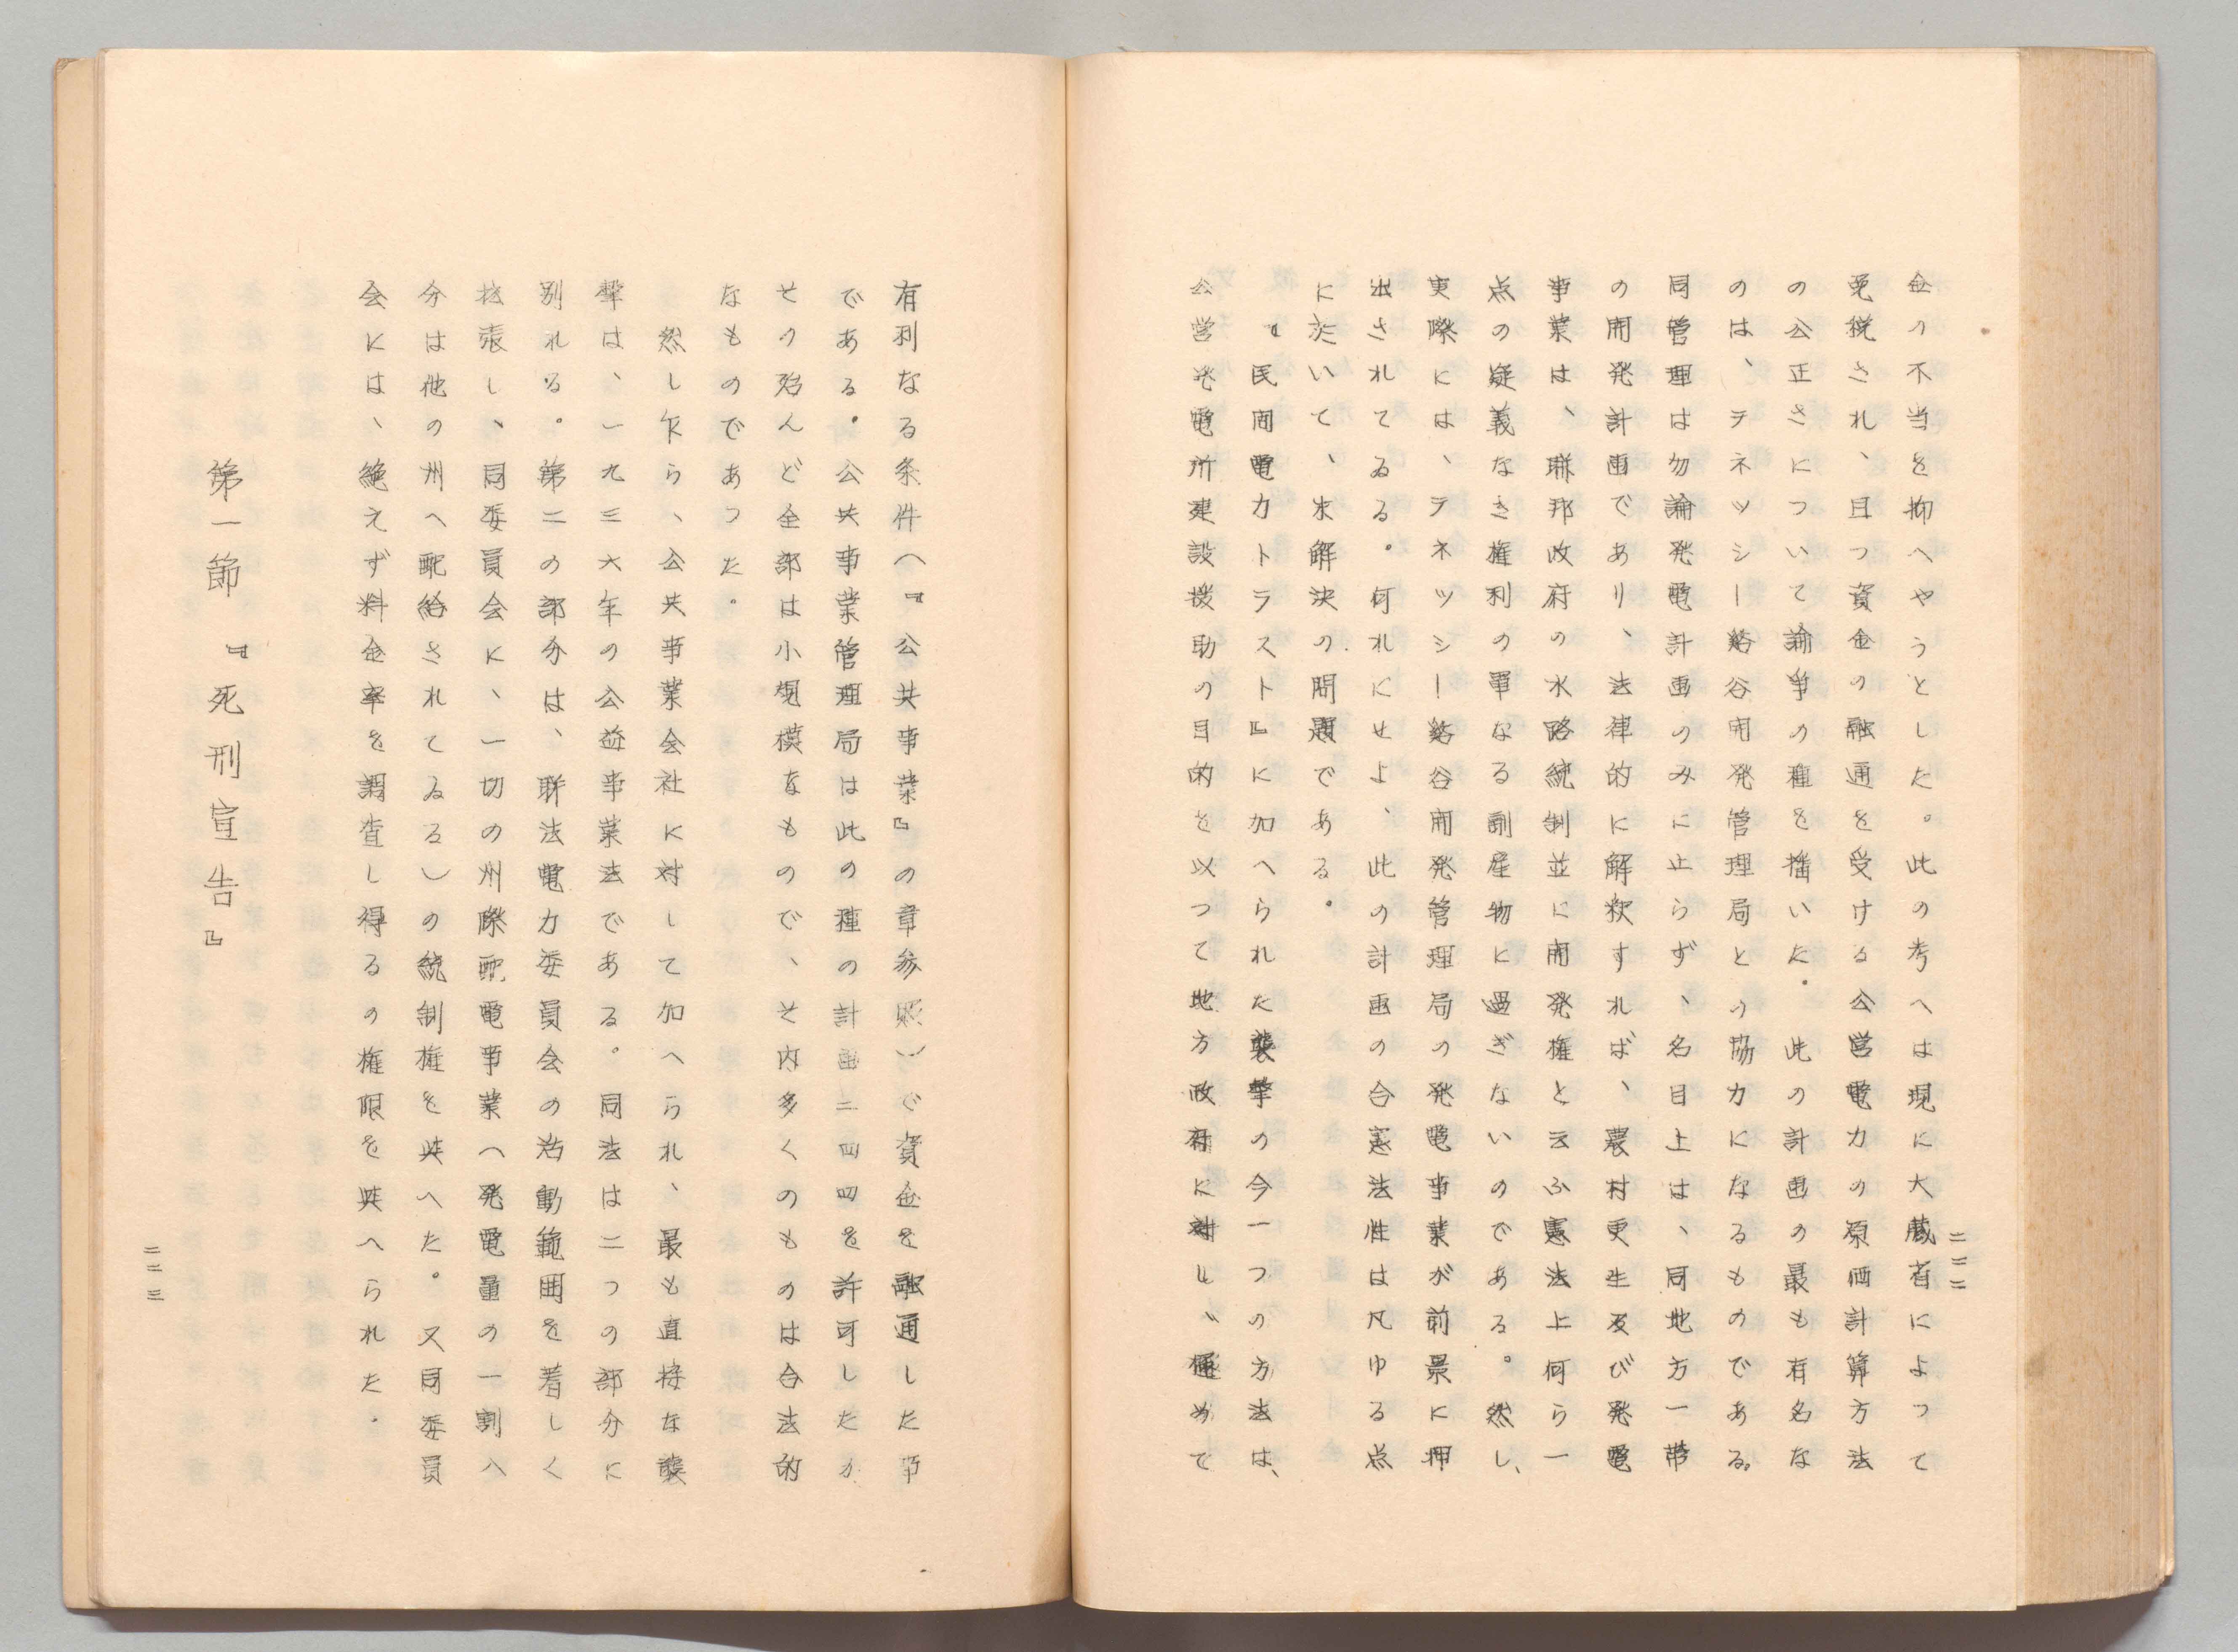 二二二
金の不当を抑へやうとした。此の考へは現に大蔵省によつて
免税され、且つ資金の融通を受ける公営電力の原価計算方法
の公正さについて論争の種を播いた。此の計画の最も有名な
のは、テネツシー谿谷開発管理局との協力になるものである。
同管理は勿論発電計画のみに止らず、名目上は、同地方一帯
の開発計画であり、法律的に解釈すれば、農村更生及び発電
事業は、聯邦政府の水路統制並に開発権と云ふ憲法上何ら一
点の疑義なき権利の単なる副産物に過ぎないのである。然し、
実際には、テネツシー谿谷開発管理局の発電事業が前景に押
出されてゐる。何れにせよ、此の計画の合憲法性は凡ゆる点
に於いて、未解決の問題である。
『民間電力トラスト』に加へられた襲撃の今一つの方法は、
公営発電所建設援助の目的を以つて地方政府に対し、極めて
有利なる条件(『公共事業』の章参照)で資金を融通した事
である。公共事業管理局は此の種の計画二四四を許可したが
その殆んど全部は小規模なもので、その内多くのものは合法的
なものであつた。
然し乍ら、公共事業会社に対して加へられ、最も直接な襲
撃は、一九三六年の公益事業法である。同法は二つの部分に
別れる。第二の部分は、聯法電力委員会の活動範囲を著しく
拡張し、同委員会に、一切の州際配電事業へ発電量の一割八
分は他の州へ配給されてゐる)の統制権を與へた。又同委員
会には、絶えず料金率を調査し得るの権限を與へられた。
第一節 『死刑宣告』
二二三